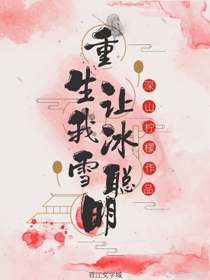 重生我
让冰雪
聪明
深山柠檬作品
晋江文学城